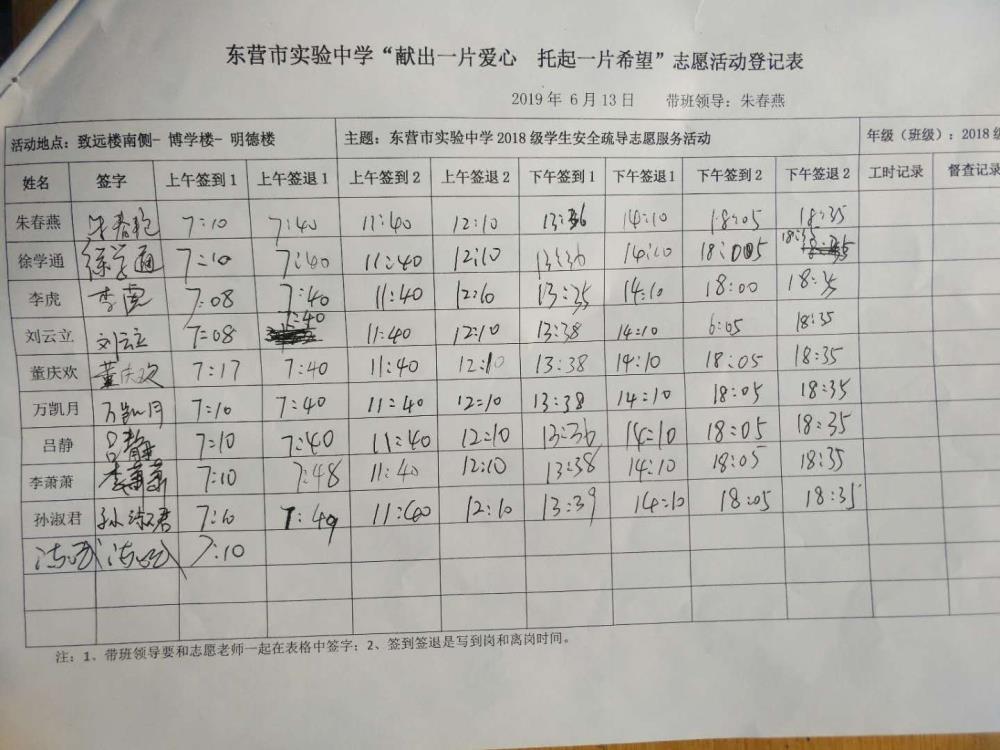 东营市实验中学“献出一片爱心 托起一片希望”志愿活动登记表
2019 年 6 月 13 日 带班领导：朱春燕
活动地点：致远楼南侧- 博学楼- 明德楼 主题：东营市实验中学 2018 级学生安全疏导志愿服务活动 年级（班级）：2018级
姓名 签字 上午签到 1 上午签退 1 上午签到 2 上午签退 2 下午签到 1 下午签退 1 下午签到 2 下午签退 2 工时记录 督查记录
朱春燕 朱春艳 7:10 7:40 11:40 12:10 13:36 14:10 18:05 18:35
徐学通 徐学通 7:10 7:40 11:40 12:10 13:36 14:10 18:05 18:35
李虎 李虎 7:08 7:40 11:40 12:10 13:35 14:10 18:00 18:35
刘云立 刘云立 7:08 7:40 11:40 12:10 13:38 14:10 6:05 18:35
董庆欢 董庆欢 7:17 7:40 11:40 12:10 13:38 14:10 18:05 18:35
万凯月 万凯月 7:10 7:40 11:40 12:10 13:38 14:10 18:05 18:35
吕静 吕静 7:10 7:40 11:40 12:10 13:36 14:10 18:05 18:35
李萧萧 李萧萧 7:10 7:48 11:40 12:10 13:38 14:10 18:05 18:35
孙淑君 孙淑君 7:10 7:49 11:40 12:10 13:39 14:10 18:05 18:35
7:10
注：1、带班领导要和志愿老师一起在表格中签字；2、签到签退是写到岗和离岗时间。